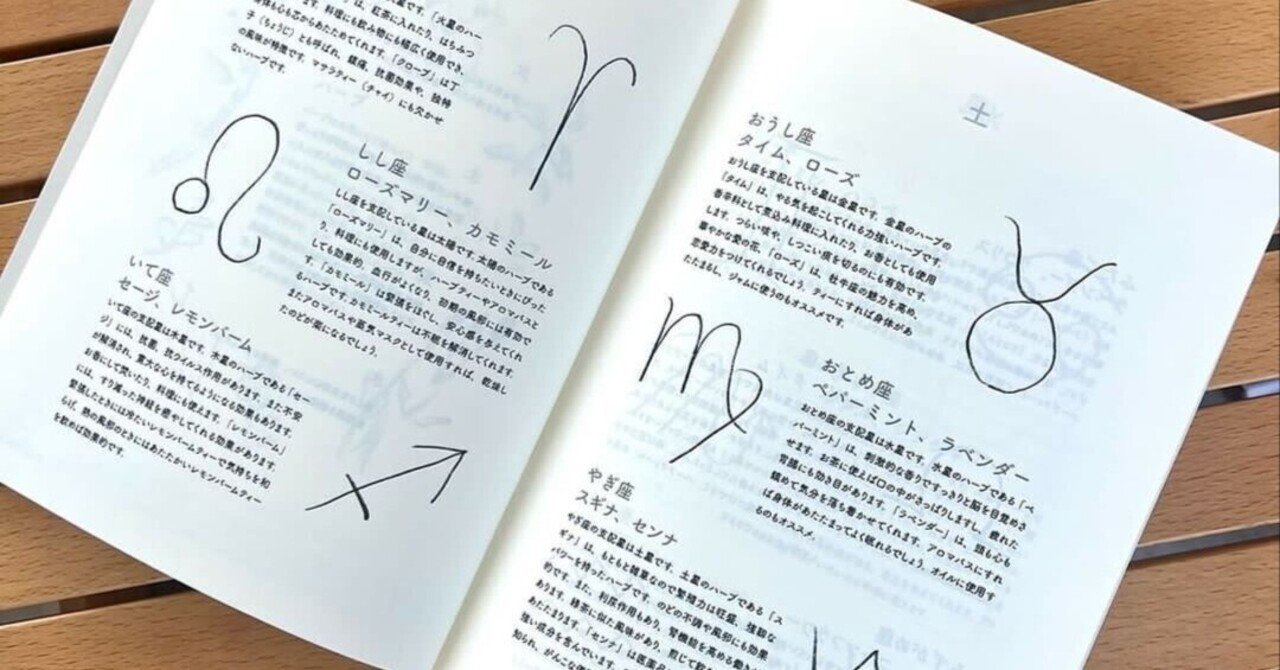 星です。「火星のハー
は、紅茶に入れたり、はちみつ
ます。料理にも飲み物にも幅広く使用でき、
身体も心も芯からあたためてくれます。「クローブ」は丁
子（ちょうじ）とも呼ばれ、鎮痛、抗菌効果や、独特
の風味が特徴です。マサラティー（チャイ）にも欠かせ
ないハーブです。
しし座
ローズマリー、カモミール
しし座を支配している星は太陽です。太陽のハーブである
「ローズマリー」は、自分に自信を持ちたいときにぴった
り。料理にも使用しますが、ハーブティーやアロマバスと
しても効果的。血行がよくなり、初期の風邪には有効で
す。「カモミール」は緊張をほぐし、安心感を与えてくれ
るハーブです。カモミールティーは不眠を解消してくれます。
またアロマバスや蒸気マスクとして使用すれば、乾燥し
たのどが楽になるでしょう。
いて座
セージ、レモンバーム
いて座の支配星は木星です。木星のハーブである「セー
ジ」には、抗菌、抗ウイルス作用があります。また不安
が解消され、寛大な心を持てるようになる効果もあります。
お香にして焚いたり、料理にも使えます。「レモンバーム」
には、すり減った神経を癒やしてくれる効果があります。
緊張したときには冷たいレモンバームティーで気持ちを和
らげ、熱の風邪のときにはあたたかいレモンバームティー
を飲めば効果的です。
土
おうし座
タイム、ローズ
おうし座を支配している星は金星です。金星のハーブの
「タイム」は、やる気を起こしてくれる力強いハーブです。
香辛料として煮込み料理に入れたり、お香としても使用
します。つらい咳や、しつこい痰を切るのにも有効です。
華やかな愛の花、「ローズ」は、牡牛座の魅力を高め、
恋愛力をつけてくれるでしょう。ティーにすれば身体があ
たたまるし、ジャムに使うのもオススメです。
おとめ座
ペパーミント、ラベンダー
おとめ座の支配星は水星です。水星のハーブである「ペ
パーミント」は、刺激的な香りですっきりと脳を目覚めさ
せます。お茶に使えば口の中がさっぱりしますし、疲れた
胃腸にも効き目があります。「ラベンダー」は、頭も心も
鎮めて気分を落ち着かせてくれます。アロマバスにすれ
ば身体があたたまってよく眠れるでしょう。オイルに使用す
るのもオススメ。
やぎ座
スギナ、センナ
やぎ座の支配星は土星です。土星のハーブである「ス
ギナ」は、もともと雑草なので繁殖力は旺盛、強靭な
パワーを持ったハーブです。のどの不調や風邪にも効果
的です。また、利尿作用もあり、腎機能を高める働き
あります。緑茶に似た風味があり、煎じて
あたたまります。「センナ」は医薬品
強い成分を含んでいます。
知られ、がんこな便